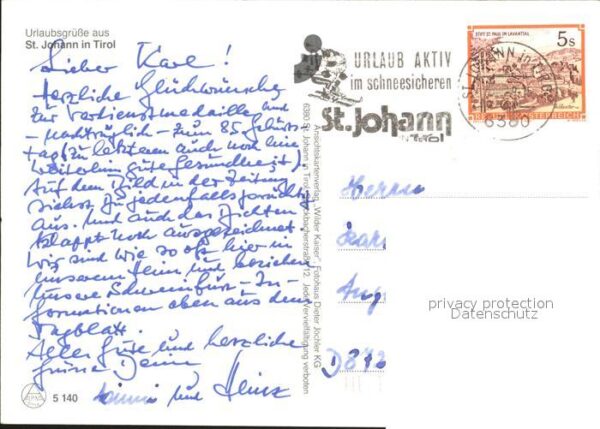 Urlaubsgrüße aus
St. Johann in Tirol
Lieber Karl!
Herzliche Glückwünsche
zur Verdienstmedaille und
- nachträglich - zum 85. Geburts-
tag, zu letzterem auch noch eine
weiterhin gute Gesundheit!
Auf dem Bild in der Zeitung
siehst Du jedenfalls
aus. Und auch das Dichten
klappt noch ausgezeichnet.
Wir sind wie so oft hier in
unserem Heim und beziehen
unsere Schweinfurt-In-
formationen eben aus dem
Tagblatt.
Alles Gute und herzliche
Grüsse Deine
und Heinz
5 140
Ansichtskartenverlag „Wilder Kaiser“, Fotohaus Dieter Jöchler KG
6380 St. Johann in Tirol, 12, Jede Vervielfältigung verboten
URLAUB AKTIV
im schneesicheren
St. Johann
in Tirol
STIFT ST. PAUL IM LAVANTTAL
5s
REPUBLIK ÖSTERREICH
6380
Herrn
Karl
Aug
D872
privacy protection
Datenschutz